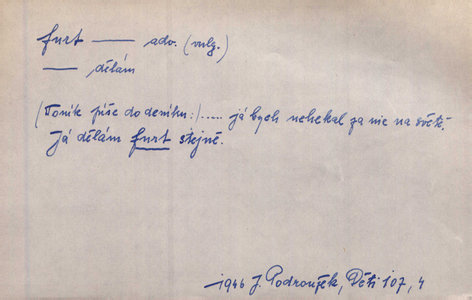 furt — adv. (vulg.)
— dělám
(Toník píše do deníku:) ..... já bych nehekal za nic na světě.
Já dělám furt stejně.
1946 J. Podroužek, Děti 107, 4